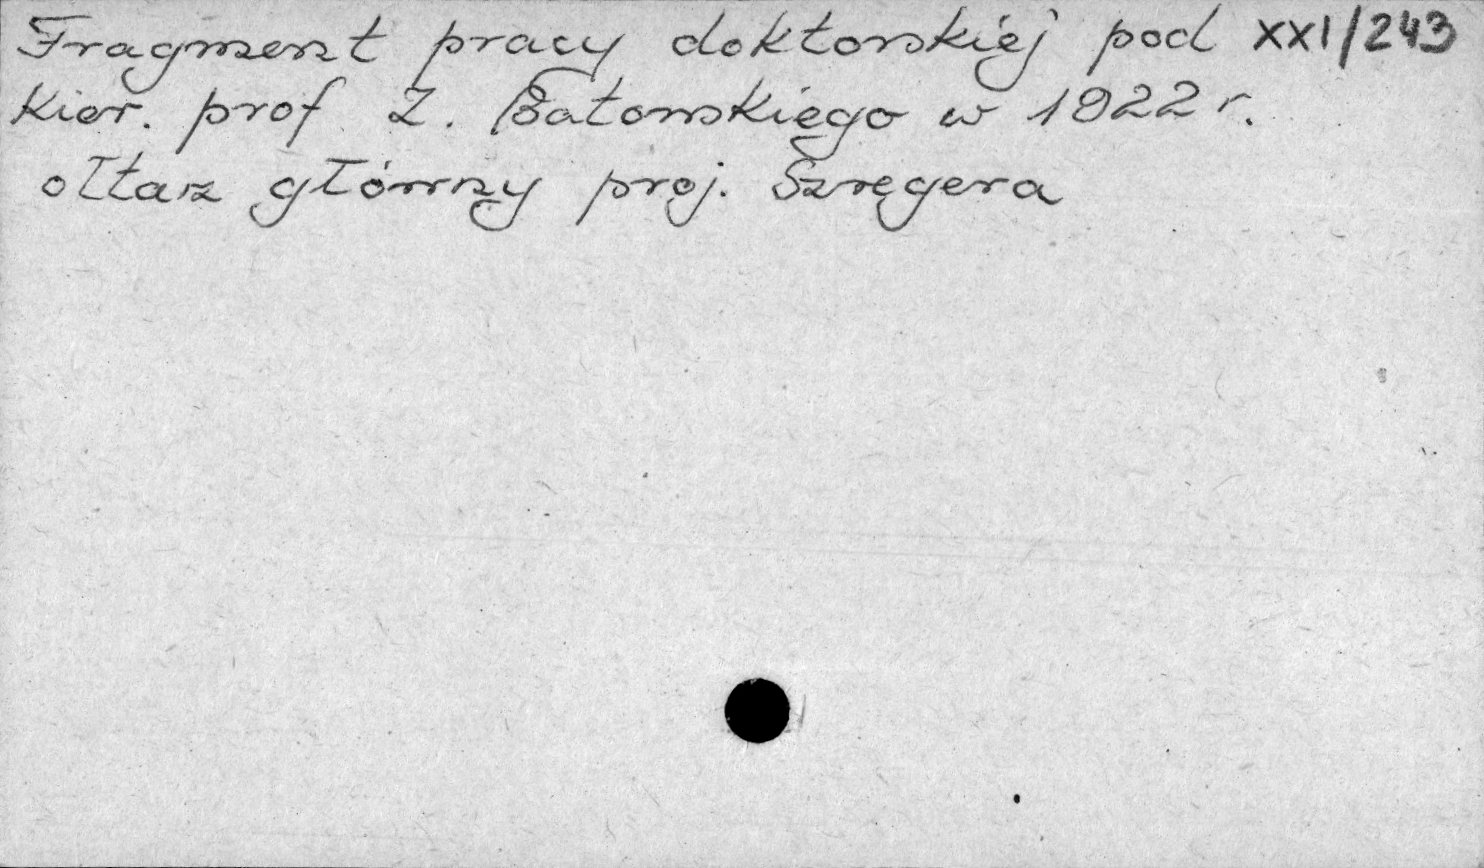 Fragment pracy doktorskiej pod XXI/243
Kier. prof. Z. Batowskiego w 1922 r.
ołtarz główny proj. Szregera